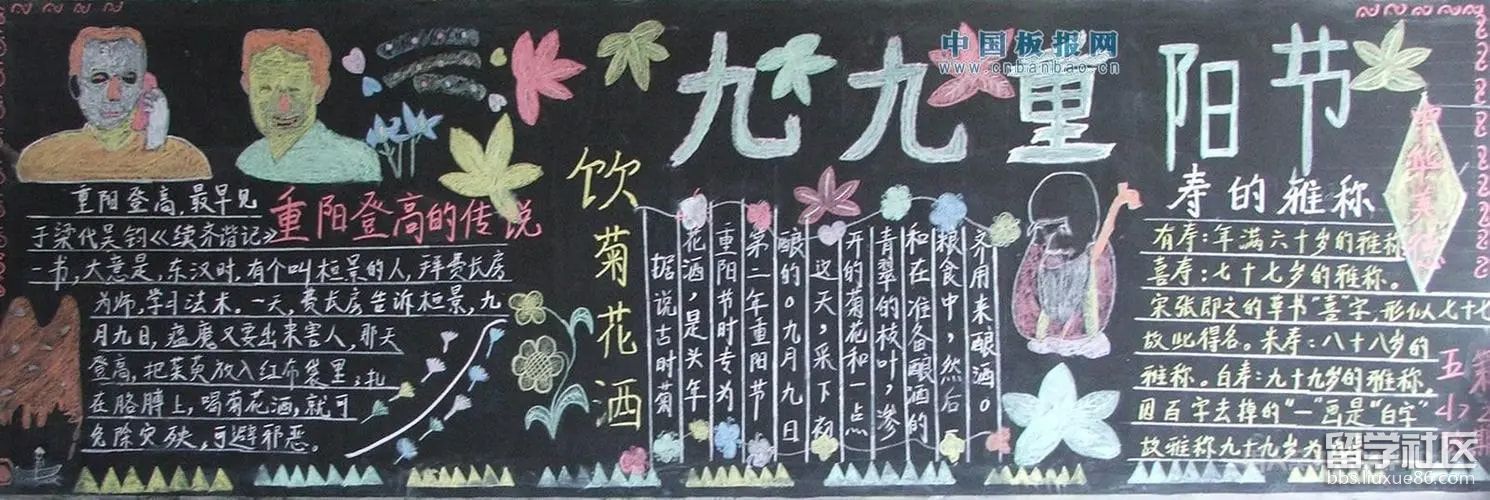 中国板报网
www.cnbanbao.cn
九九重阳节
重阳登高的传说
重阳登高,最早见
于梁代吴钧《续齐谐记》
一书,大意是,东汉时,有个叫桓景的人,拜费长房
为师,学习法术。一天,费长房告诉桓景,九
月九日,瘟魔又要出来害人,那天
登高,把茱萸放入红布袋里,扎
在胳膊上,喝菊花酒,就可
免除灾殃,可避邪恶。
饮菊花酒
据说古时菊
花酒,是头年
重阳节时专为
第二年重阳节
酿的。九月九日
这天,采下初
开的菊花和一点
青翠的枝叶,掺
和在准备酿酒的
粮食中,然后一
齐用来酿酒。
寿的雅称
有寿:年满六十岁的雅称
喜寿:七十七岁的雅称。
宋张即之的草书"喜"字,形似七十七
故此得名。朱寿:八十八岁的
雅称。白寿:九十九岁的雅称,
因百字去掉的"一"画是"白字"
故雅称九十九岁为
中华美德
五小
留学社区
bbs.liuxue86.com